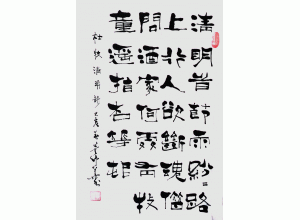 清明旹節雨紛々路
上行人欲斷魂借
問酒家何處有牧
童遙指杏花邨
杜牧清明詩